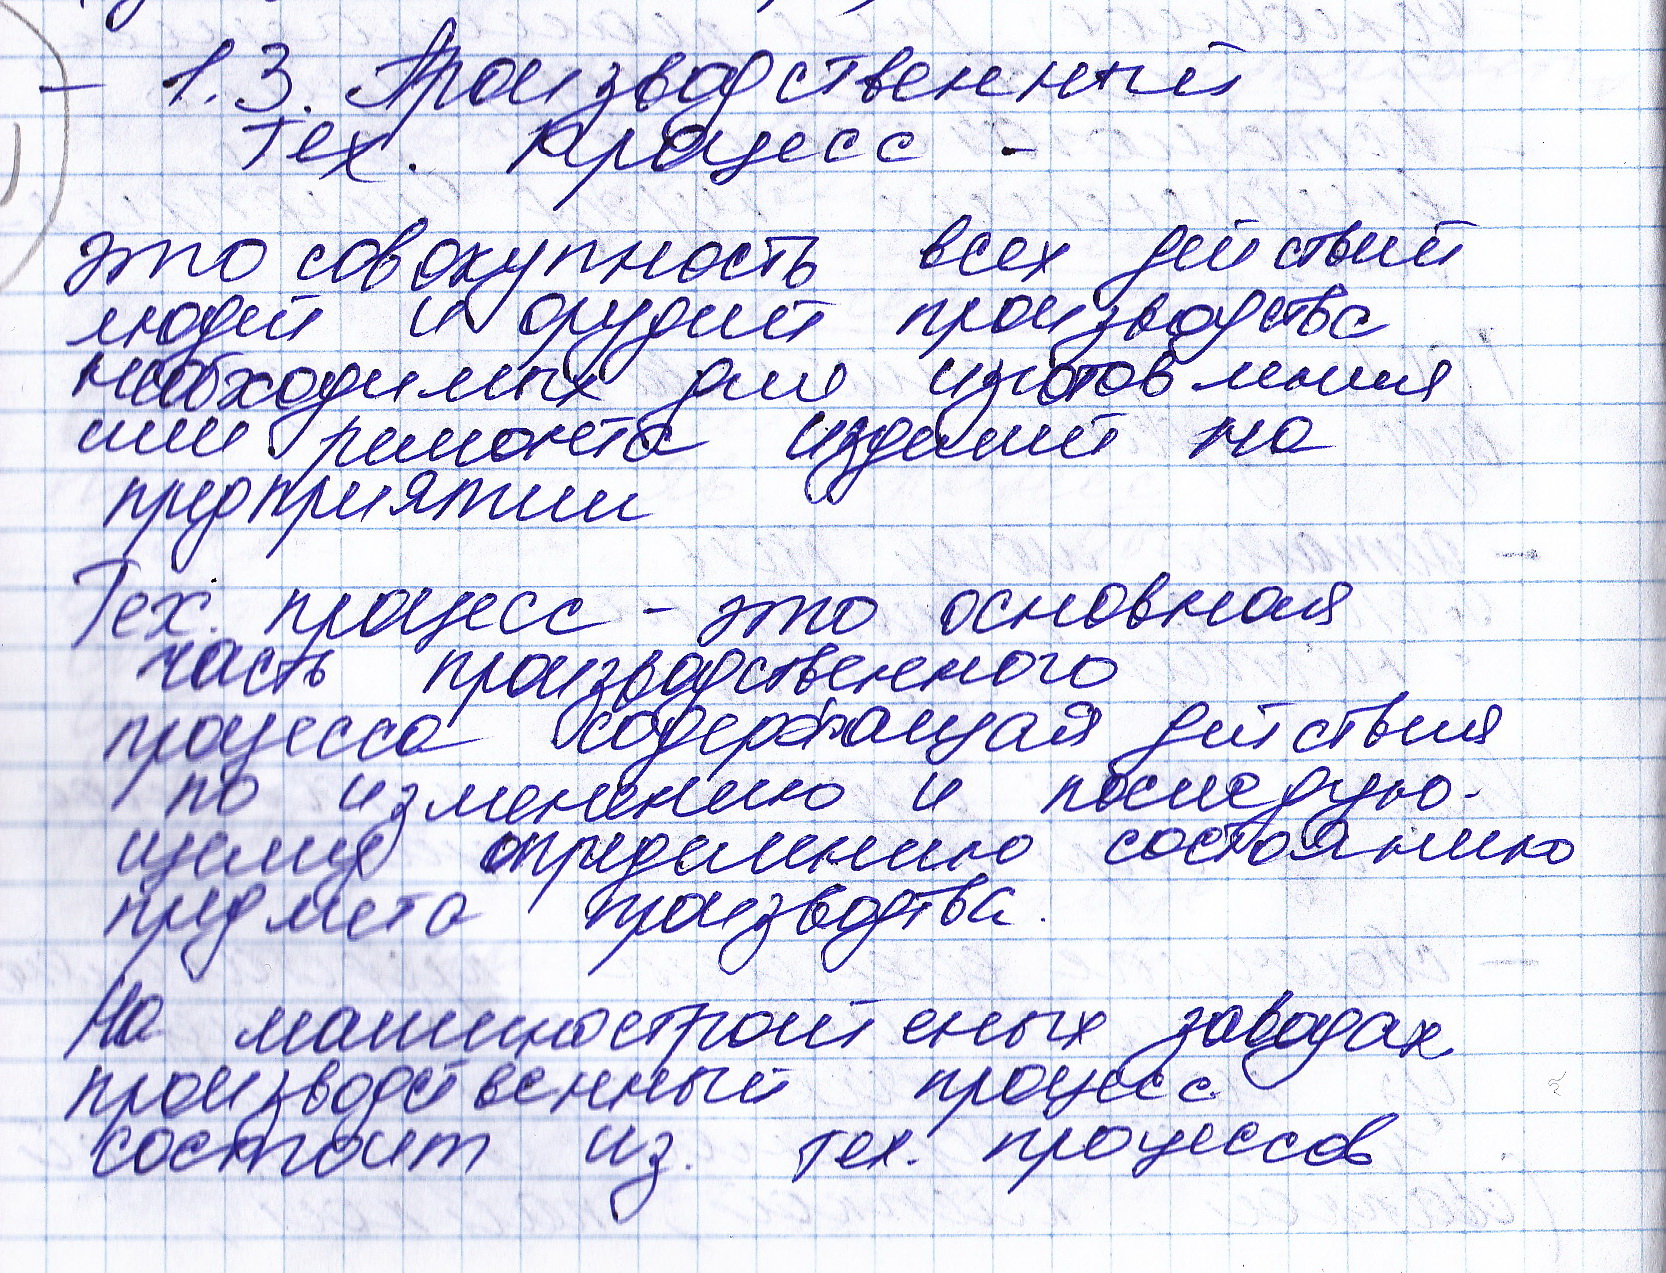 - 1.3. Производственный
тех. процесс -
это совокупность всех действий
людей и орудий производства
необходимых для изготовления
или ремонта изделий на
предприятии
Тех. процесс - это основная
часть производственного
процесса содержащая действия
по изменению и последую-
щему определению состоянию
предмета производтва.
На машиностроит еных заводах
производственный процесс
состоит из. тех. процессов